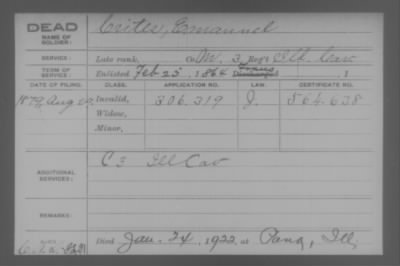 DEAD
NAME OF SOLDIER: Crites, Emanuel
SERVICE: Late rank, Co. M, 3 Reg't Ill Cav
TERM OF SERVICE: Enlisted Feb 25, 1864 Discharged , 1
DATE OF FILING. CLASS. APPLICATION NO. LAW. CERTIFICATE NO.
1879 Aug Invalid, 306.319 J. 564.638
Widow,
Minor,
ADDITIONAL SERVICES: C 3 Ill Cav
REMARKS:
Died Jan. 24, 1922, at Pana, Ill.